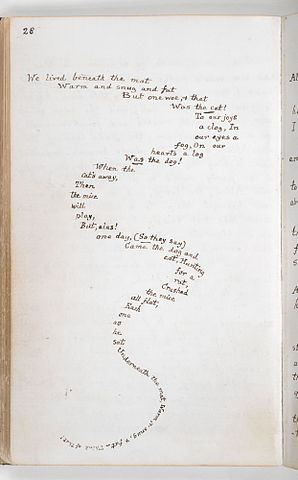 28
We lived beneath the mat
Warm and snug and fat
But one woe, & that
Was the cat!
To our joys
a clog, In
our eyes a
fog, On our
hearts a log
Was the dog!
When the
cat's away,
Then
the mice
will
play,
But, alas!
one day, (So they say)
Came the dog and
cat, Hunting
for a
rat,
Crushed
the mice
all flat,
Each
one
as
he
sat
Underneath the mat, Warm, & snug, & fat... Think of that!